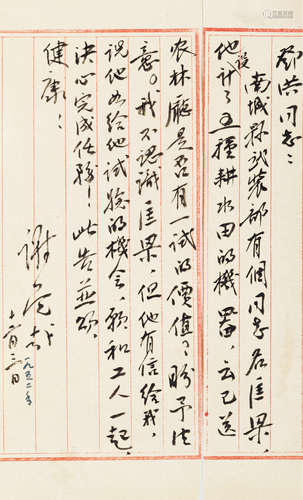 邵洪同志：
南城县武装部有個同志名匡梁，
他设计了五種耕水田的機器，云已送
农林廳是否有一试的價值？盼予注
意。我不認識匡梁，但他有信给我，
说他如给他试验的機会，願和工人一起，
决心完成任務！此告並颂
健康！
谢觉哉
十一月三日
一九五二年